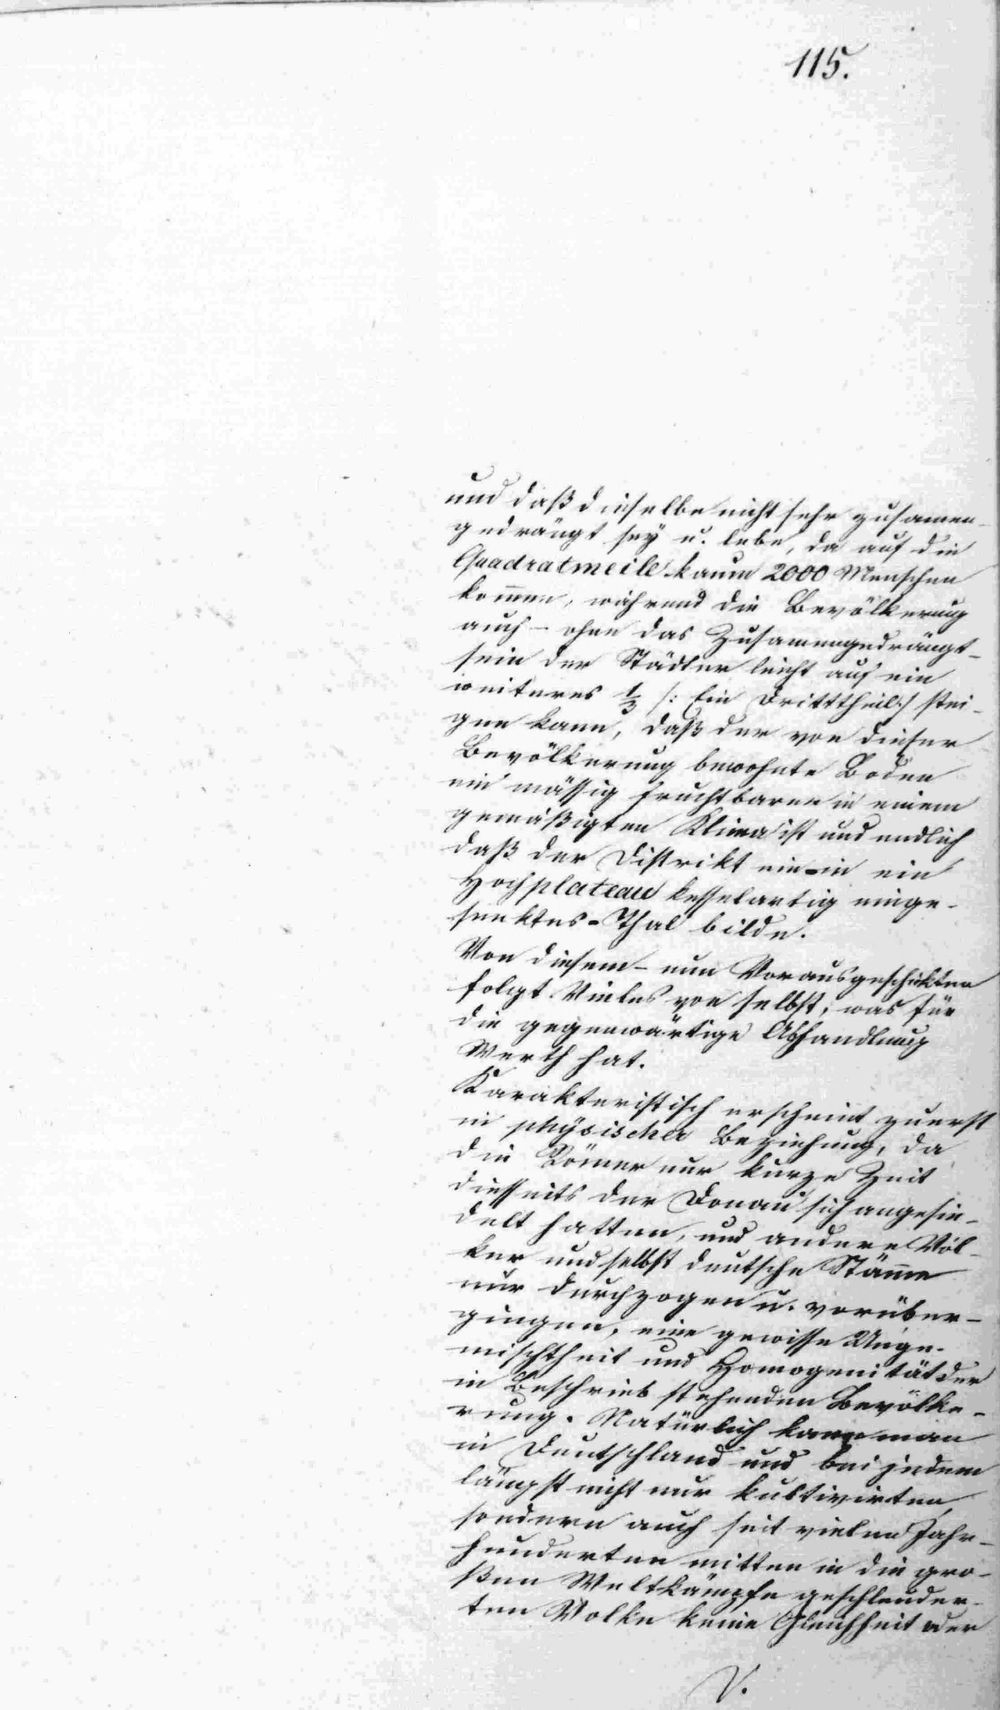 115.
und daß dieselbe nicht sehr zusamen-
gedrängt sey u. lebe, da auf die
Quadratmeile kaum 2000 Menschen
kommen, während die Bevölkerung
auch – ohne das Zusamengedrängt-
sein der Städter leicht auf ein
weiteres 1/3 /: Ein Dritttheil:/ stei-
gen kann, daß der von dieser
Bevölkerung bewohnte Boden
ein mässig fruchtbarer in einem
gemäßigten Klima ist und endlich
daß der Distrikt ein in ein
Hochplateau kesselartig einge-
senktes-Thal bilde.
Von diesem – nun Vorausgeschickten
folgt Vieles von selbst, was für
die gegenwärtige Abhandlung
Werth hat.
Karakteristisch erscheint zuerst
in physischer Beziehung, da
die Römer nur kurze Zeit
diesseits der Donau sich angesie-
delt hatten, und andere Völ-
ker und selbst deutsche Stämme
nur durchzogen u. vorüber-
gingen, eine gewisse Unge-
mischtheit und Homogenität der
in Beschrieb stehenden Bevölke-
rung. Natürlich kann man
in Deutschland und bei jedem
längst nicht nur kultivirten,
sondern auch seit vielen Jahr-
hunderten mitten in die gro-
ßen Weltkämpfe geschleuder-
ten Volke keine Gleichheit oder
V.